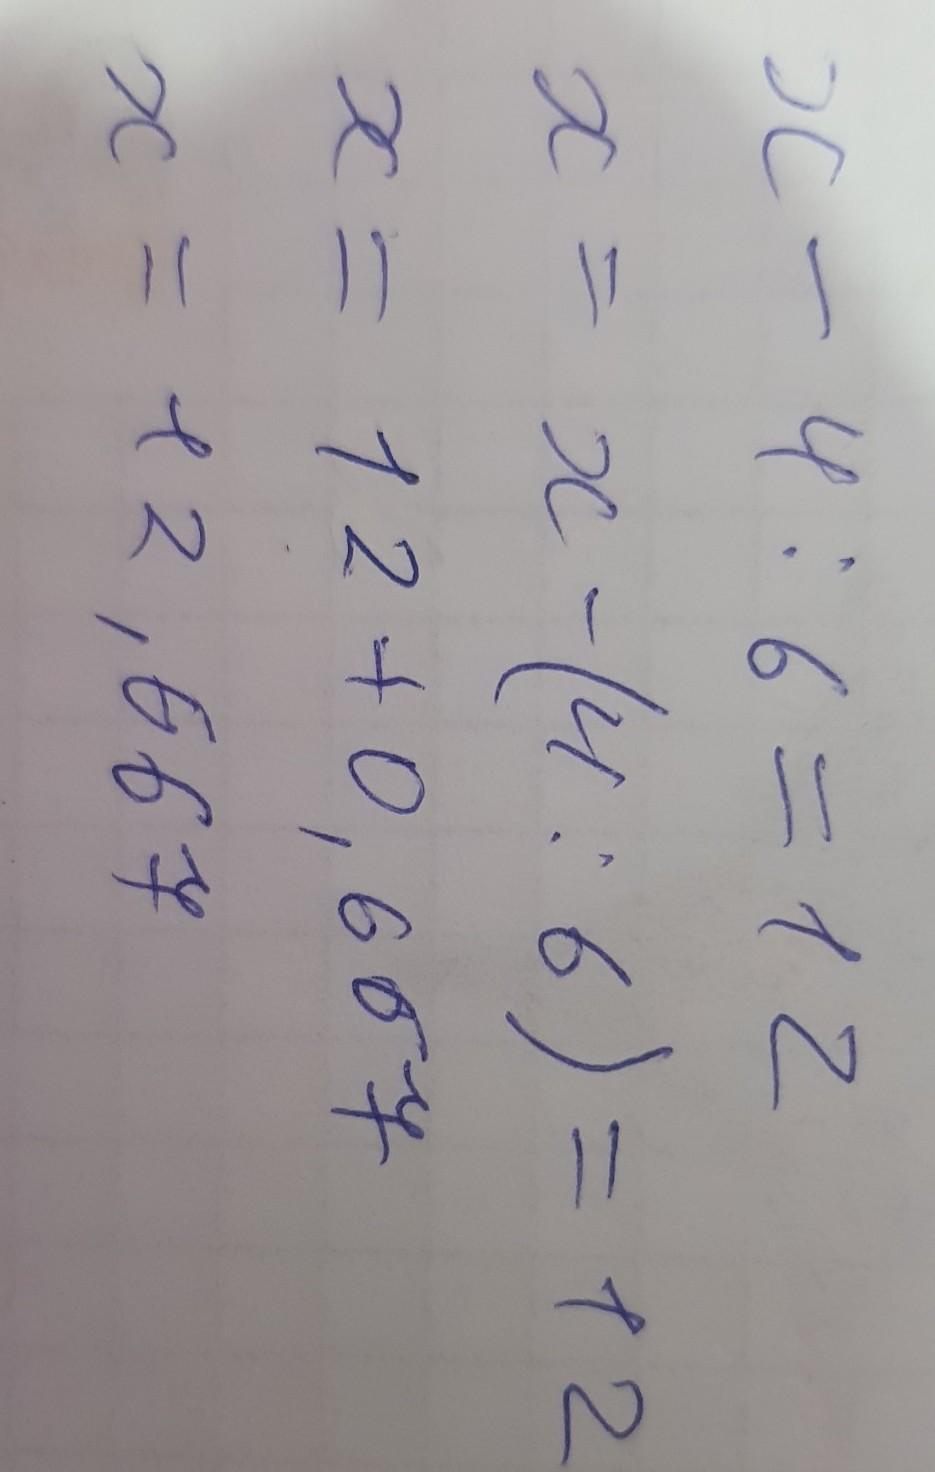 x - 4 : 6 = 12
x = x - (4 : 6) = 12
x = 12 + 0,667
x = 12,667